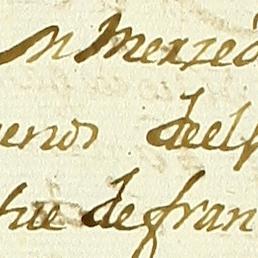 n Merzed
uenos deel
hue de fran